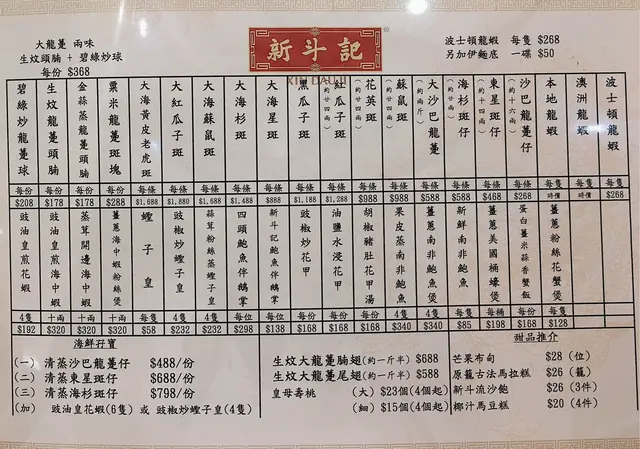 大龍躉 兩味
生炆頭腩 + 碧綠炒球
每份 $368
新斗記
XIN DAU JI
波士頓龍蝦 每隻 $268
另加伊麵底 一碟 $50
碧綠炒龍躉球 每份 $208
生炆龍躉頭腩 每份 $178
金蒜蒸龍躉頭腩 每份 $178
粟米龍躉斑塊 每份 $288
大海黃皮老虎斑 每條 $1,688
大紅瓜子斑 每條 $1,880
大海蘇鼠斑 每條 $1,688
大海杉斑 每條 $1,488
大海星斑 每條 $888
黑瓜子斑 每條 $1,188
紅瓜子斑 (約廿四兩) 每條 $1,288
花英斑 (約廿四兩) 每條 $988
蘇鼠斑 每條 $988
大沙巴龍躉 (約兩斤) 每條 $588
海杉斑仔 (約廿兩) 每條 $588
東星斑仔 (約十四兩) 每條 $468
沙巴龍躉仔 (約十六兩) 每條 $268
本地龍蝦 每隻 時價
澳洲龍蝦 每隻 時價
波士頓龍蝦 每隻 $268
豉油皇煎花蝦 4隻 $192
豉油皇煎海中蝦 十兩 $320
蒜茸開邊海中蝦 十兩 $320
薑蔥海中蝦粉絲煲 十兩 $320
蟶子皇 每隻 $58
豉椒炒蟶子皇 4隻 $232
蒜茸粉絲蒸蟶子皇 4隻 $232
四頭鮑魚伴鵝掌 每位 $298
新斗記鮑魚伴鵝掌 每位 $138
豉椒炒花甲 每份 $168
油鹽水浸花甲 每份 $168
胡椒豬肚花甲湯 每份 $168
果皮蒸南非鮑魚 4隻 $340
薑蔥南非鮑魚煲 4隻 $340
新鮮南非鮑魚 每隻 $85
薑蔥美國桶蠔煲 每桶 $198
蛋白薑米蒜香蟹飯 每份 $168
薑蔥粉絲花蟹煲 每隻 $128
海鮮孖寶
(一) 清蒸沙巴龍躉仔 $488/份
(二) 清蒸東星斑仔 $688/份
(三) 清蒸海杉斑仔 $798/份
(加) 豉油皇花蝦(6隻) 或 豉椒炒蟶子皇(4隻)
生炆大龍躉腩翅(約一斤半) $688
生炆大龍躉尾翅(約一斤半) $588
皇母壽桃 (大) $23個(4個起)
(細) $15個(4個起)
甜品推介
芒果布甸 $28 (位)
原籠古法馬拉糕 $26 (籠)
新斗流沙飽 $26 (3件)
椰汁馬豆糕 $20 (4件)